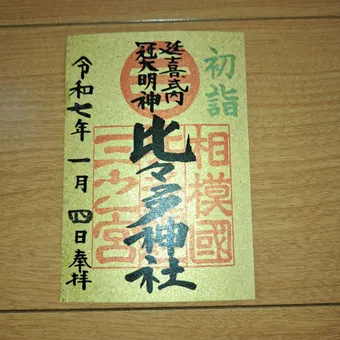 初詣
延喜式内
冠大明神
比々多神社
相模國
三之宮
令和七年 一月 四日奉拝